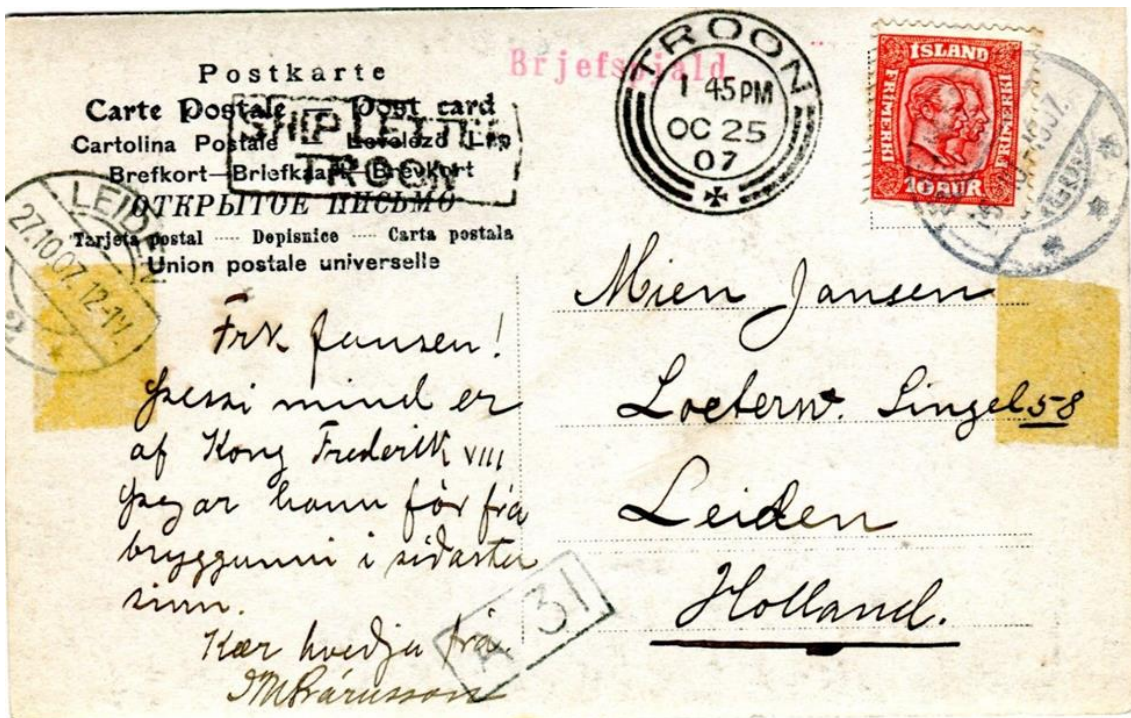 Postkarte
Carte Postale Post card
Cartolina Postale Levelező Lap
Brefkort—Briefkaart—Brevkort
ОТКРЫТОЕ ПИСЬМО
Tarjeta postal ---- Dopisnice ---- Carta postala
Union postale universelle
SHIP LETTER
TROON
Brjefspjald
TROON
1 45 PM
OC 25
07
ÍSLAND
FRIMERKI
FRIMERKI
10 AUR
LEIDEN
27.10.07. 12-1V.
2
Frk Jansen!
Þessi mind er
af Kong Frederik VIII
Þegar hann fór frá
bryggunni i siðasta
sinn.
Kær kvedja frá
A 31
Mien Jansen
Singel 58
Leiden
Holland.